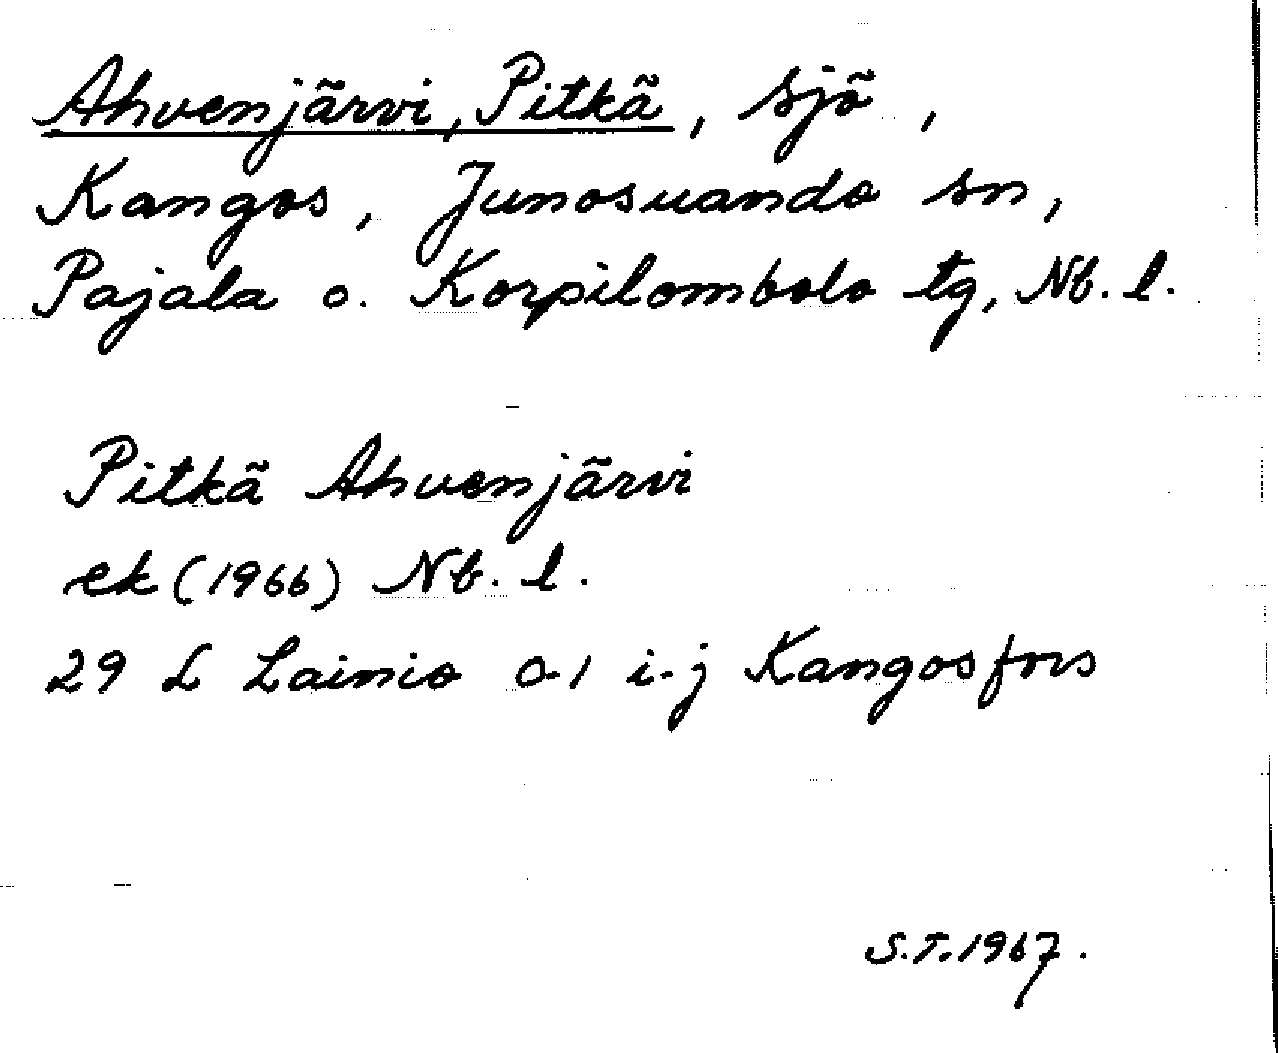 Ahvenjärvi, Pitkä, sjö,
Kangos, Junosuando sn,
Pajala o. Korpilombolo tg, Nb. l.
Pitkä Ahvenjärvi
ek (1966) Nb. l.
29 L Lainio 0-1 i-j Kangosfors
S.T. 1967.